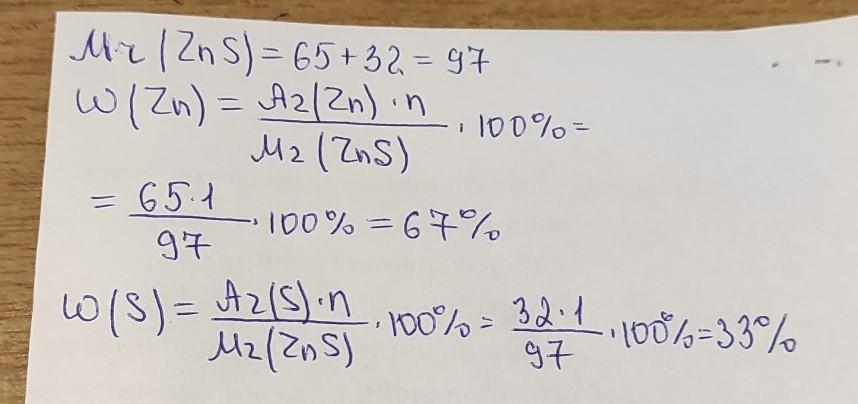 Mr (ZnS) = 65 + 32 = 97
ω (Zn) = Ar(Zn) · n / Mr (ZnS) · 100% =
= 65·1 / 97 · 100% = 67%
ω (S) = Ar(S)·n / Mr(ZnS) · 100% = 32·1 / 97 · 100% = 33%